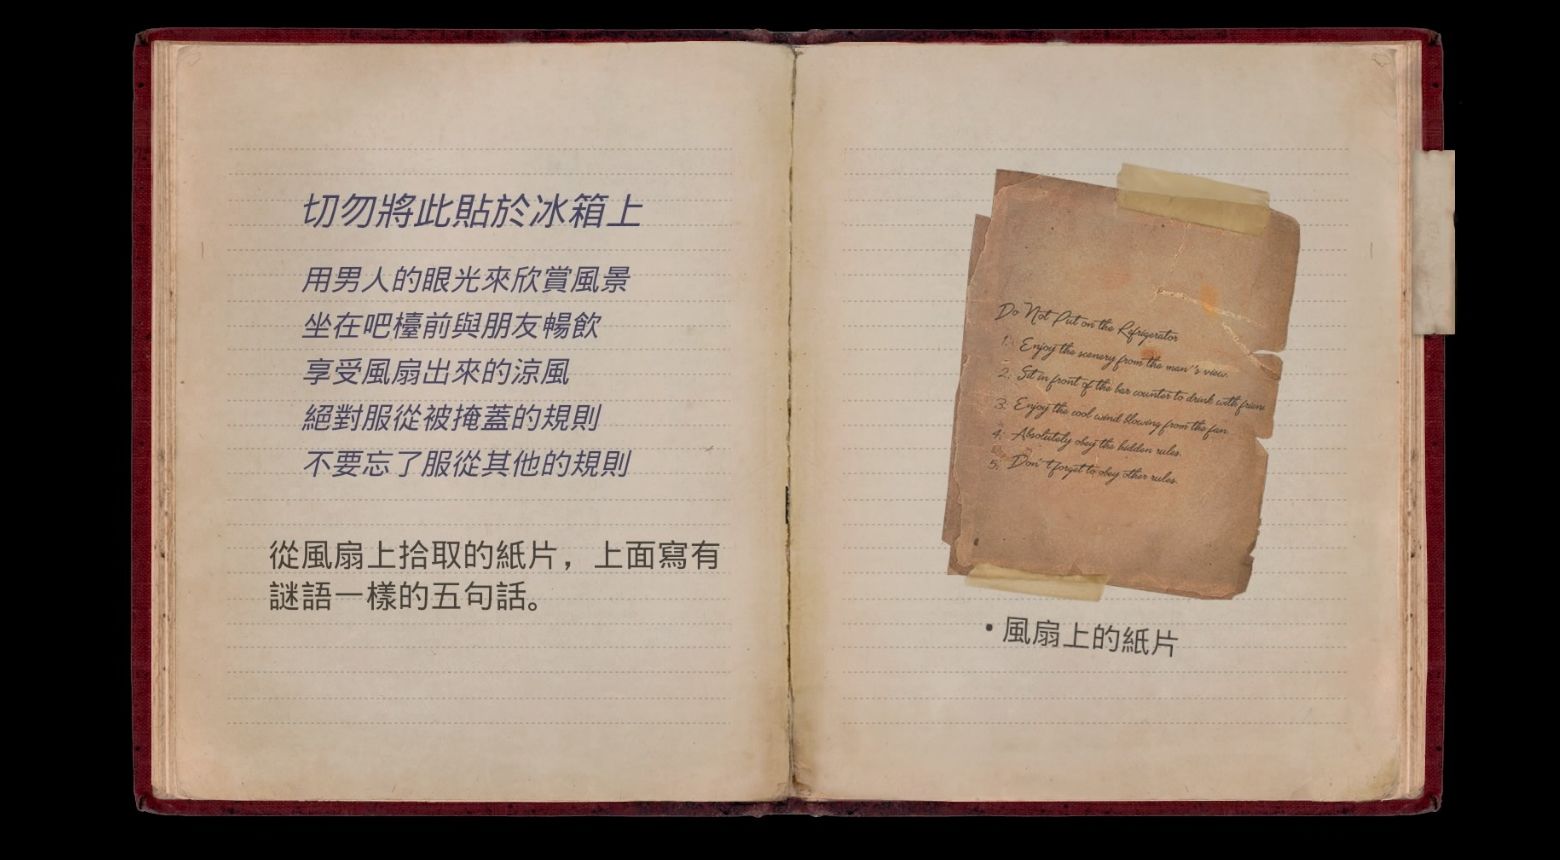 切勿將此貼於冰箱上
用男人的眼光來欣賞風景
坐在吧檯前與朋友暢飲
享受風扇出來的涼風
絕對服從被掩蓋的規則
不要忘了服從其他的規則
從風扇上拾取的紙片，上面寫有
謎語一樣的五句話。
Do Not Put on the Refrigerator
1. Enjoy the scenery from the man's view.
2. Sit in front of the bar counter to drink with
3. Enjoy the cool wind blowing from the fan.
4. Absolutely obey the hidden rules.
5. Don't forget to obey other rules.
•風扇上的紙片